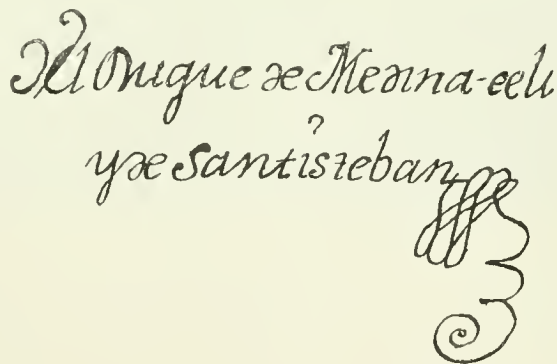 El Duque de Medina-celi
y de Santisteban